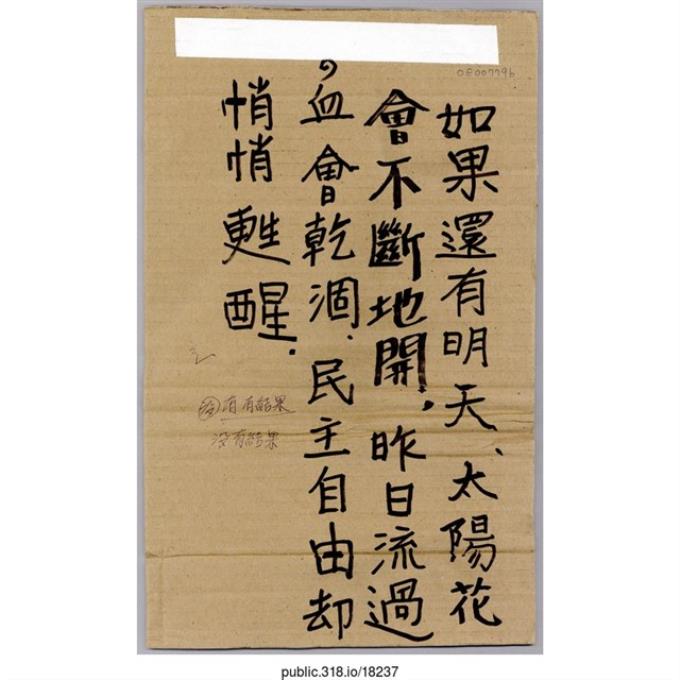 如果還有明天、太陽花
會不斷地開,昨日流過
血會乾涸、民主自由却
悄悄甦醒.
有結果
没有結果
0E007796
public.318.io/18237